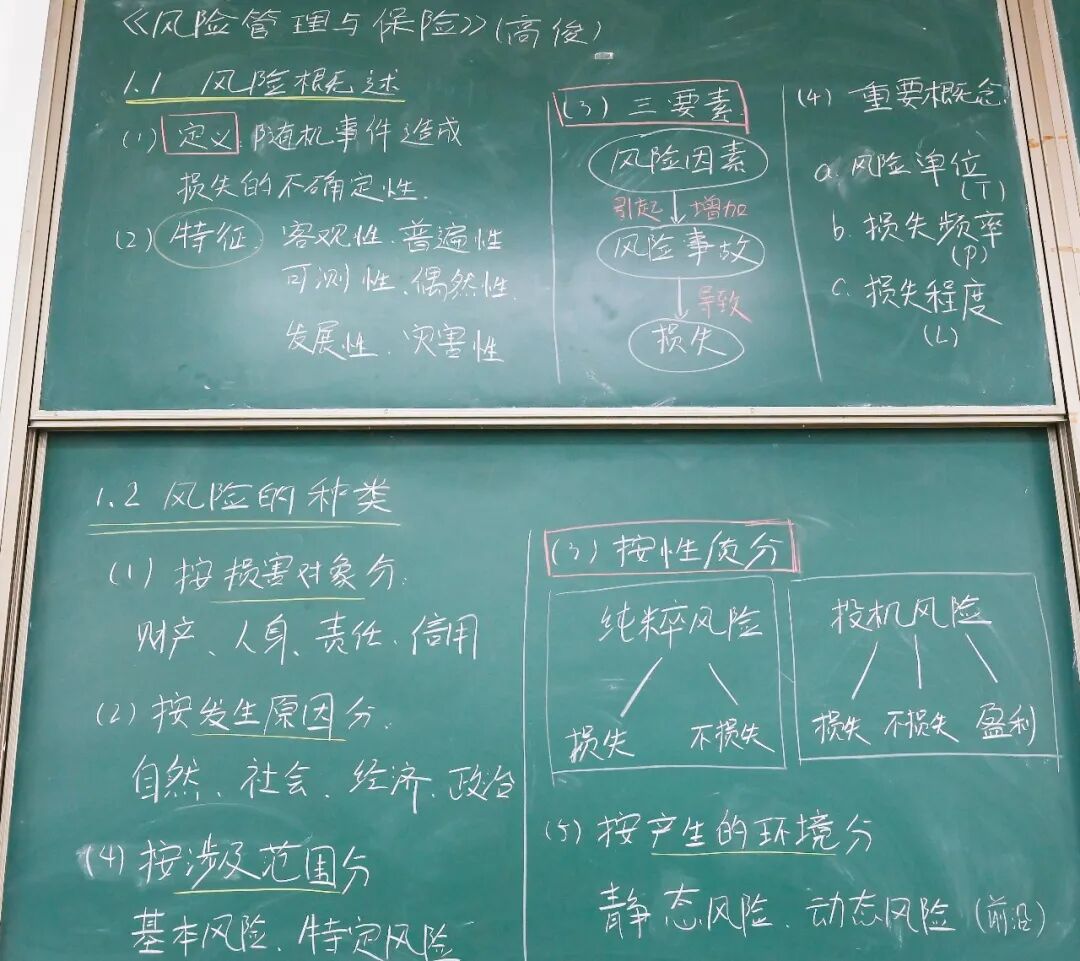 《风险管理与保险》(高俊)
1.1 风险概述
(1) 定义:随机事件造成
损失的不确定性.
(2) 特征: 客观性、普遍性
可测性、偶然性.
发展性、灾害性
(3) 三要素.
风险因素
引起 增加
风险事故
导致
损失
(4) 重要概念
a.风险单位
(T)
b.损失频率
(P)
c.损失程度
(L)
1.2 风险的种类
(1) 按损害对象分.
财产、人身、责任、信用
(2) 按发生原因分.
自然、社会、经济、政治
(4) 按涉及范围分
基本风险、特定风险
(3) 按性质分
纯粹风险
损失 不损失
投机风险
损失 不损失 盈利
(5) 按产生的环境分
静态风险、动态风险 (前沿)